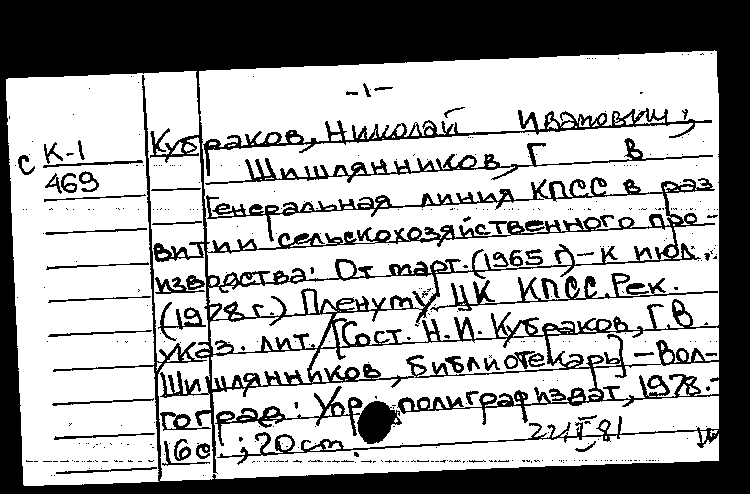 -1-
Кубраков, Николай Иванович;
с К-1
Шишлянников, Г В
469
Генеральная линия КПСС в раз
витии сельскохозяйственного про-
изводства: От март. (1965 г) - к июл.
(1978 г.) Пленуму ЦК КПСС. Рек.
указ. лит. / [Сост. Н.И. Кубраков, Г.В.
Шишлянников, библиотекарь] - Вол-
гоград: Упр полиграфиздат, 1978.-
16с.; 20 см.